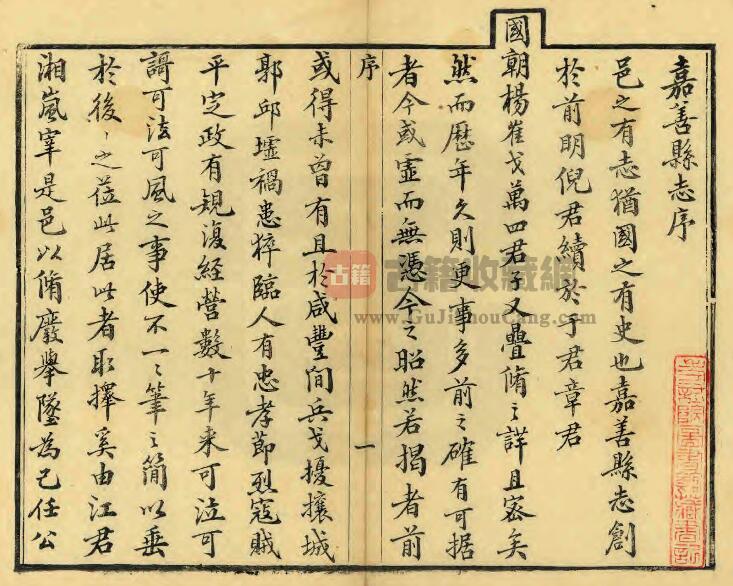 嘉善縣志序
邑之有志猶國之有史也嘉善縣志創
於前明倪君續於于君章君
國朝楊崔戈萬四君子又疊脩之詳且密矣
然而歷年久則更事多前之確有可據
者今或虛而無憑今之昭然若揭者前
序
一
或得未曾有且於咸豐間兵戈擾攘城
郭邱墟禍患猝臨人有忠孝節烈寇賊
平定政有規復經營數十年來可泣可
謌可法可風之事使不一一筆之簡以垂
於後後之莅此居此者取擇奚由江君
湘嵐宰是邑以脩廢舉墜為己任公
古籍
古籍收藏網
www.GuJiShouCang.com